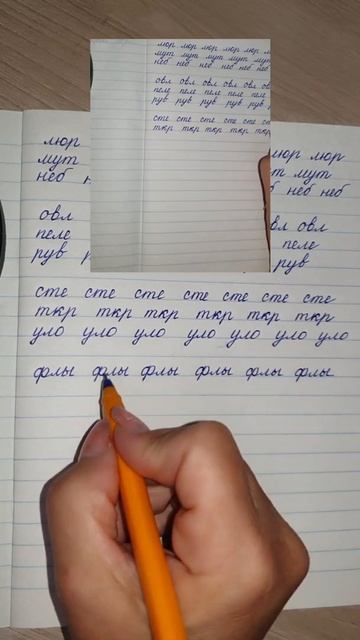 люр люр люр люр люр
мут мут мут мут мут
неб неб неб неб неб
овл овл овл овл овл
пеле пеле пеле пеле пеле
рув рув рув рув рув
сте сте сте сте сте
ткр ткр ткр ткр ткр
люр люр люр
мут мут
неб неб неб
овл овл
пеле пеле
рув рув
сте сте сте сте сте сте сте
ткр ткр ткр ткр ткр ткр
уло уло уло уло уло уло уло
флы флы флы флы флы флы